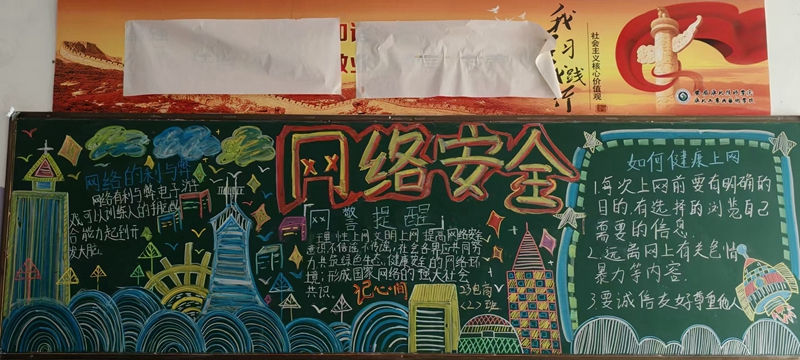 我习我践行
社会主义核心价值观
网络安全
网络的利与弊
网络有利与弊电子游
戏可以训练人的手脑配
合能力起到开
发大脑.
网警提醒
理性上网文明上网提高网络安全
意识不信谣不传谣,社会各界应共同努
力共筑绿色生态、健康安全的网络环
境;形成国家网络的强大社会
共识。
记心间
23电商
<2>班
如何健康上网
1.每次上网前要有明确的
目的,有选择的浏览自己
需要的信息.
2.远离网上有关色情
暴力等内容.
3要诚信友好尊重他人